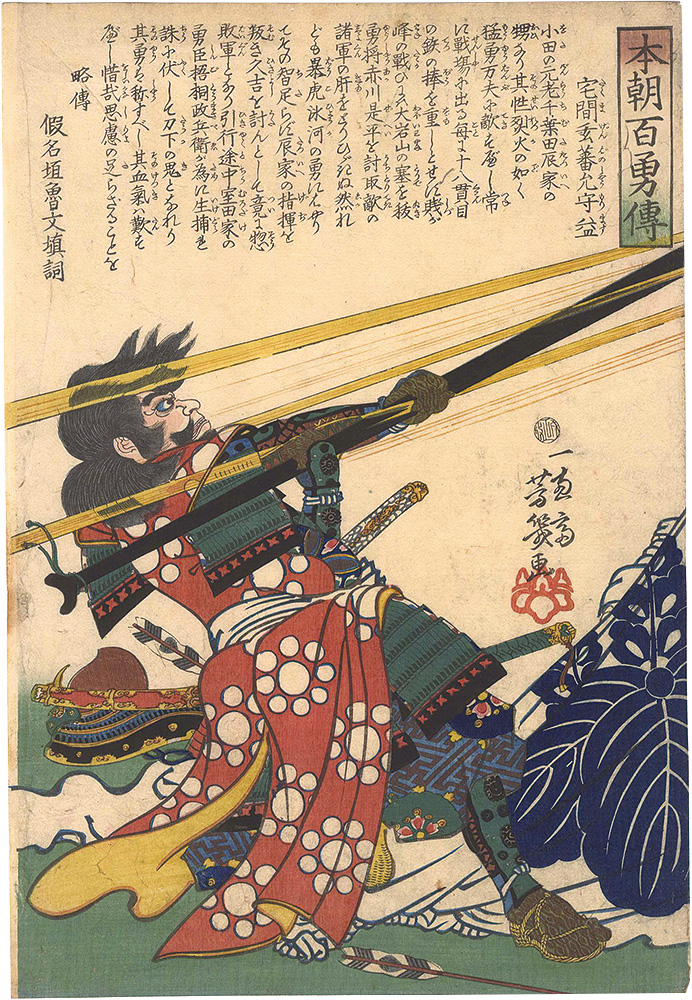 本朝百勇傳
宅間玄蕃允守益
小田の元老千葉田辰家の
甥なり其性烈火の如く
猛勇万夫に敵すべし常
に戦場に出る毎に十八貫目
の鉄の棒を重しとせず賎が
峰の戦ひに大岩山の塞を抜
勇将赤川是平を討取敵の
諸軍の肝をとりひしぎぬ然れ
ども暴虎氷河の勇にはやり
てその智足らず辰家の指揮を
叛き久吉を討んとして竟に惣
敗軍となり引行途中室田家の
勇臣 桐政兵衛が為に生捕
誅に伏して刀下の鬼となれり
其勇を称すべく其血氣は歎ず
べし惜哉思慮の足らざることを
略傳
假名垣魯文填詞
一蕙齋
芳幾画